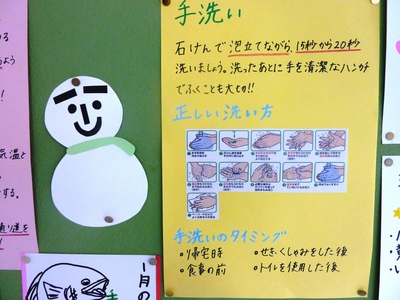 手洗い
石けんで泡立てながら、15秒から20秒
洗いましょう。洗ったあとに手を清潔なハンカチ
でふくことも大切!!
正しい洗い方
手洗いのタイミング
・帰宅時 ・せき、くしゃみをした後
・食事の前 ・トイレを使用した後
る
よう
!
気温と
する。
通り道を
!!
1月の
手